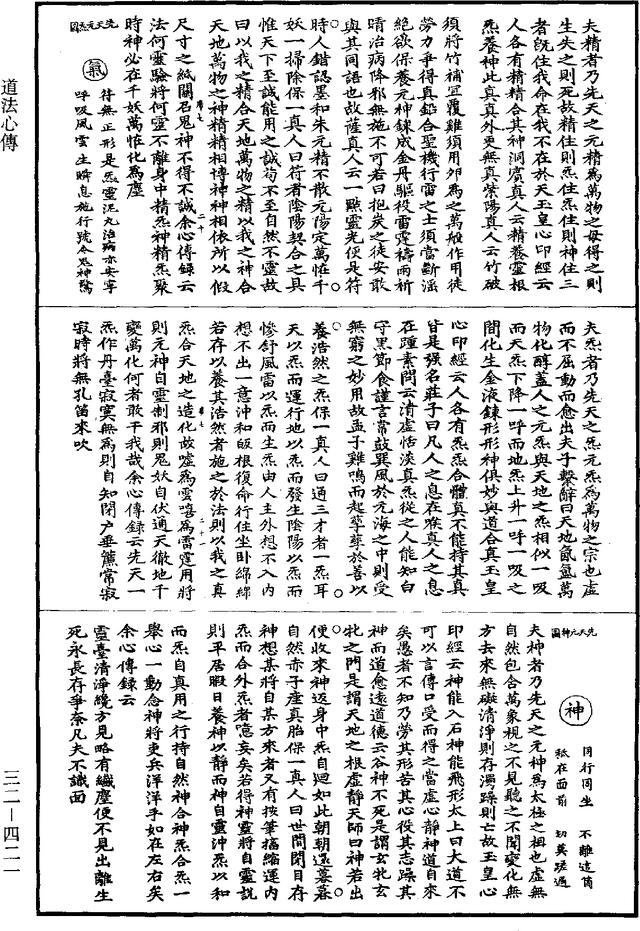 道法心傳
夫精者乃先天之元精為萬物之母得之則
生失之則死故精住則炁住炁住則神住三
者旣住我命在我不在於天玉皇心印經云
人各有精精合其神洞賓真人云精養靈根
炁養神此真真外更無真紫陽真人云竹破
須將竹補宜覆雞須用卵為之萬般作用徒
勞力爭得真鉛合聖機行雷之士須當斷淫
絕欲保養元神鍊成金丹驅役雷霆禱雨祈
晴治病降邪無施不可若曰抱炭之徒安敢
與其同語也故薩真人云一點靈光便是符
時人錯認墨和朱元精不散元陽定萬恠千
妖一掃除保一真人曰符者陰陽契合之具
惟天下至誠能用之誠苟不至自然不靈故
曰以我之精合天地萬物之精以我之神合
天地萬物之神精精相慱神神相依所以假
尺寸之紙關召鬼神不得不誠余心傳錄云
法何靈驗將何靈不離身中精炁神精炁聚
時神必在千妖萬恠化為塵
先天元炁圖
氣
符無正形是炁靈泥丸治病亦安寧
呼吸風雲生瞬息施行號令鬼神驚
夫炁者乃先天之炁元炁為萬物之宗也虛
而不屈動而愈出夫子繫辭曰天地氤氳萬
物化醇蓋人之元炁與天地之炁相似一吸
而天炁下降一呼而地炁上升一呼一吸之
間化生金液鍊形形神俱妙與道合真玉皇
心印經云人各有炁炁合體真不能持其真
皆是强名莊子曰凡人之息在喉真人之息
在踵素問云清虛恬淡真炁從之人能知白
守黑節食謹言常鼓巽風於元海之中則受
無窮之妙用故孟子雞鳴而起孳孳於善以
養浩然之炁保一真人曰通三才者一炁耳
天以炁而運行地以炁而發生陰陽以炁而
慘舒風雷以炁而生炁由人主外想不入內
想不出一意沖和皈根復命行住坐卧綿綿
若存以養其浩然者施之於法則以我之真
炁合天地之造化故噓為雲嘻為雷霆用將
則元神自靈制邪則鬼妖自伏通天徹地千
變萬化何者敢干我哉余心傳錄云先天一
炁作丹臺寂寞無為則自知閉户垂簾常寂
寂時將無孔笛來吹
先天元神圖
神
同行同坐　不離這箇
秪在面前　切莫蹉過
夫神者乃先天之元神為太極之祖也虛無
自然包含萬象視之不見聽之不聞變化無
方去來無礙清淨則存濁躁則亡故玉皇心
印經云神能入石神能飛形太上曰大道不
可以言傳口受而得之當虛心靜神道自來
矣愚者不知乃勞其形苦其心役其志躁其
神而道愈遠道德云谷神不死是謂玄牝玄
牝之門是謂天地之根虛靜天師曰神若出
便收來神返身中炁自迴如此朝朝還暮暮
自然赤子產真胎保一真人曰世間閉目存
神想某將自某方來者又有按筆搐縮運內
炁而合外炁者噫妄矣若得神靈將自靈說
則平居暇日養神以靜而神自靈沖炁以和
而炁自真用之行持自然神合神炁合炁一
舉心一動念神將吏兵洋洋乎如在左右矣
余心傳錄云
靈臺清淨纔方見略有纖塵便不見出離生
死永長存爭柰凡夫不識面
三二—四二一